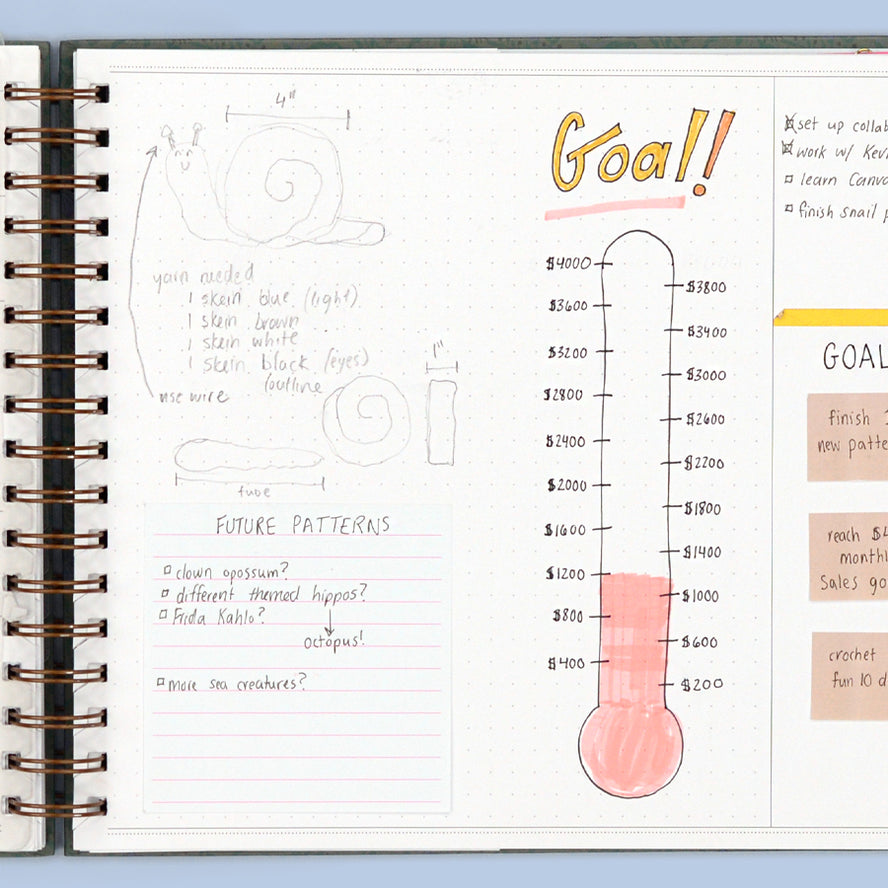 4"
yarn needed
1 skein blue (light)
1 skein brown
1 skein white
1 skein black (eyes)
(outline
use wire
1"
FUTURE PATTERNS
clown opossum?
different themed hippos?
Frida Kahlo?
octopus!
more sea creatures?
Goal!!
$4000
$3800
$3600
$3400
$3200
$3000
$2800
$2600
$2400
$2200
$2000
$1800
$1600
$1400
$1200
$1000
$800
$600
$400
$200
set up collab
work w/ Kevi
learn Canva
finish snail p
GOAL
finish 1
new patte
reach $4
monthl
Sales go
crochet
fun 10 d